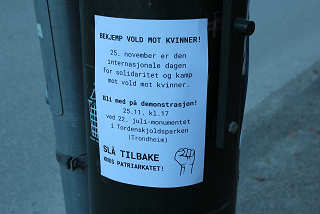 BEKJEMP VOLD MOT KVINNER!
25. november er den
internasjonale dagen
for solidaritet og kamp
mot vold mot kvinner.
Bli med på demonstrasjon!
25.11. kl.17
ved 22. juli-monumentet
i Tordenskjoldsparken
(Trondheim)
SLÅ TILBAKE
KNUS PATRIARKATET!